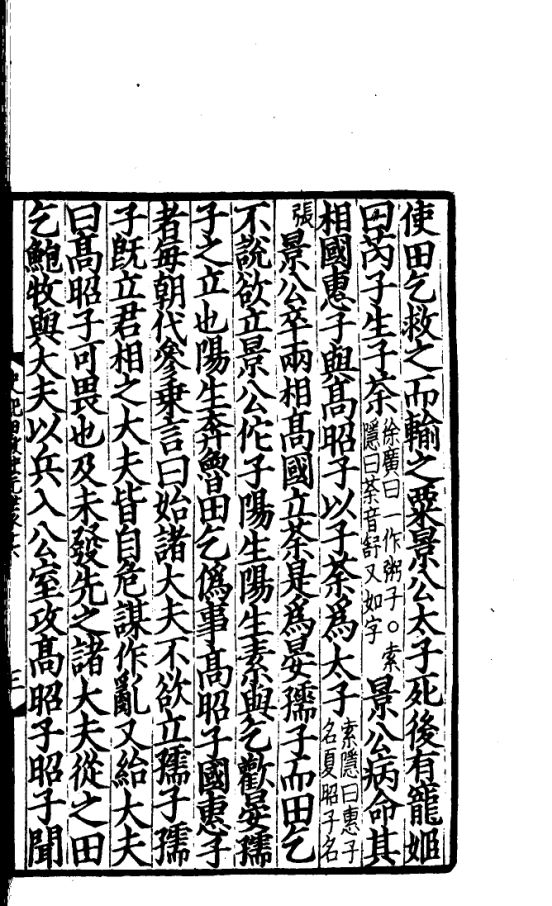 使田乞救之而輸之粟景公太子死後有寵姬
曰芮子生子荼徐廣曰一作粥子○索隱曰荼音舒又如字景公病命其
相國惠子與高昭子以子荼爲太子索隱曰惠子名夏昭子名
張景公卒兩相高國立荼是爲晏孺子而田乞
不說欲立景公佗子陽生陽生素與乞歡晏孺
子之立也陽生奔魯田乞僞事高昭子國惠子
者每朝代參乗言曰始諸大夫不欲立孺子孺
子旣立君相之大夫皆自危謀作亂又紿大夫
曰高昭子可畏也及未發先之諸大夫從之田
乞鮑牧與大夫以兵入公室攻高昭子昭子聞